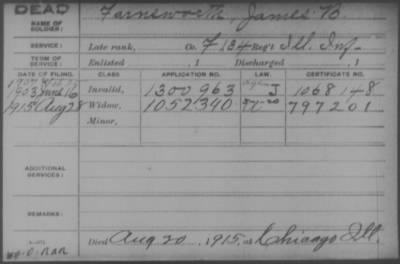 DEAD
NAME OF SOLDIER: Farnsworth, James B.
SERVICE: Late rank, Co. F 134 Reg't Ill. Inf.
TERM OF SERVICE: Enlisted , 1 Discharged , 1
DATE OF FILING. CLASS APPLICATION NO. LAW. CERTIFICATE NO.
1903 June 16 Invalid, 1300 963 J 1068 148
1915 Aug 28 Widow, 1052.340 797201
Minor,
ADDITIONAL SERVICES:
REMARKS:
Died Aug 20, 1915, at Chicago Ill.